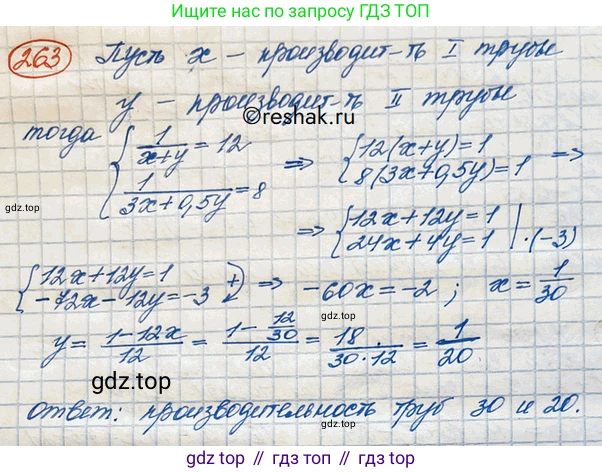 Ищите нас по запросу ГДЗ ТОП
263 Пусть x – производит-ть I трубы
y – производит-ть II трубы
©reshak.ru
тогда { 1/(x+y) = 12 => { 12(x+y)=1 =>
{ 1/(3x+0,5y) = 8 { 8(3x+0,5y)=1
gdz.top
=> { 12x+12y=1
{ 24x+4y=1 | ·(-3)
{ 12x+12y=1 (+) => -60x=-2; x=1/30
{ -72x-12y=-3
y= (1-12x)/12 = (1-12/30)/12 = 18/(30·12) = 1/20
gdz.top
gdz.top
Ответ: производительность труб 30 и 20.
гдз топ // gdz top // гдз.топ // gdz.top